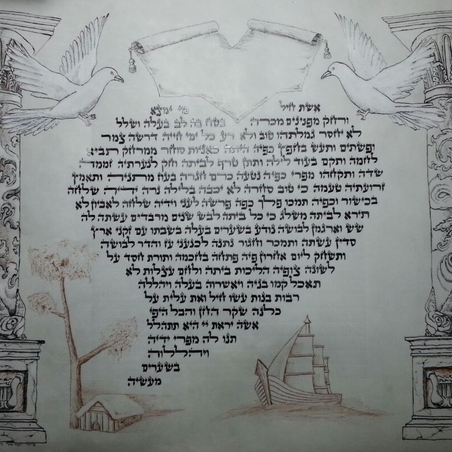 אשת חיל מי ימצא
ורחק מפנינים מכרה בטח בה לב בעלה ושלל
לא יחסר גמלתהו טוב ולא רע כל ימי חייה דרשה צמר
ופשתים ותעש בחפץ כפיה היתה כאניות סוחר ממרחק תביא
לחמה ותקם בעוד לילה ותתן טרף לביתה וחק לנערתיה זממה
שדה ותקחהו מפרי כפיה נטעה כרם חגרה בעוז מתניה ותאמץ
זרועתיה טעמה כי טוב סחרה לא יכבה בלילה נרה ידיה שלחה
בכישור וכפיה תמכו פלך כפה פרשה לעני וידיה שלחה לאביון לא
תירא לביתה משלג כי כל ביתה לבש שנים מרבדים עשתה לה
שש וארגמן לבושה נודע בשערים בעלה בשבתו עם זקני ארץ
סדין עשתה ותמכר וחגור נתנה לכנעני עז והדר לבושה
ותשחק ליום אחרון פיה פתחה בחכמה ותורת חסד על
לשונה צופיה הליכות ביתה ולחם עצלות לא
תאכל קמו בניה ויאשרוה בעלה ויהללה
רבות בנות עשו חיל ואת עלית על
כלנה שקר החן והבל היפי
אשה יראת יי היא תתהלל
תנו לה מפרי ידיה
ויהללוה
בשערים
מעשיה